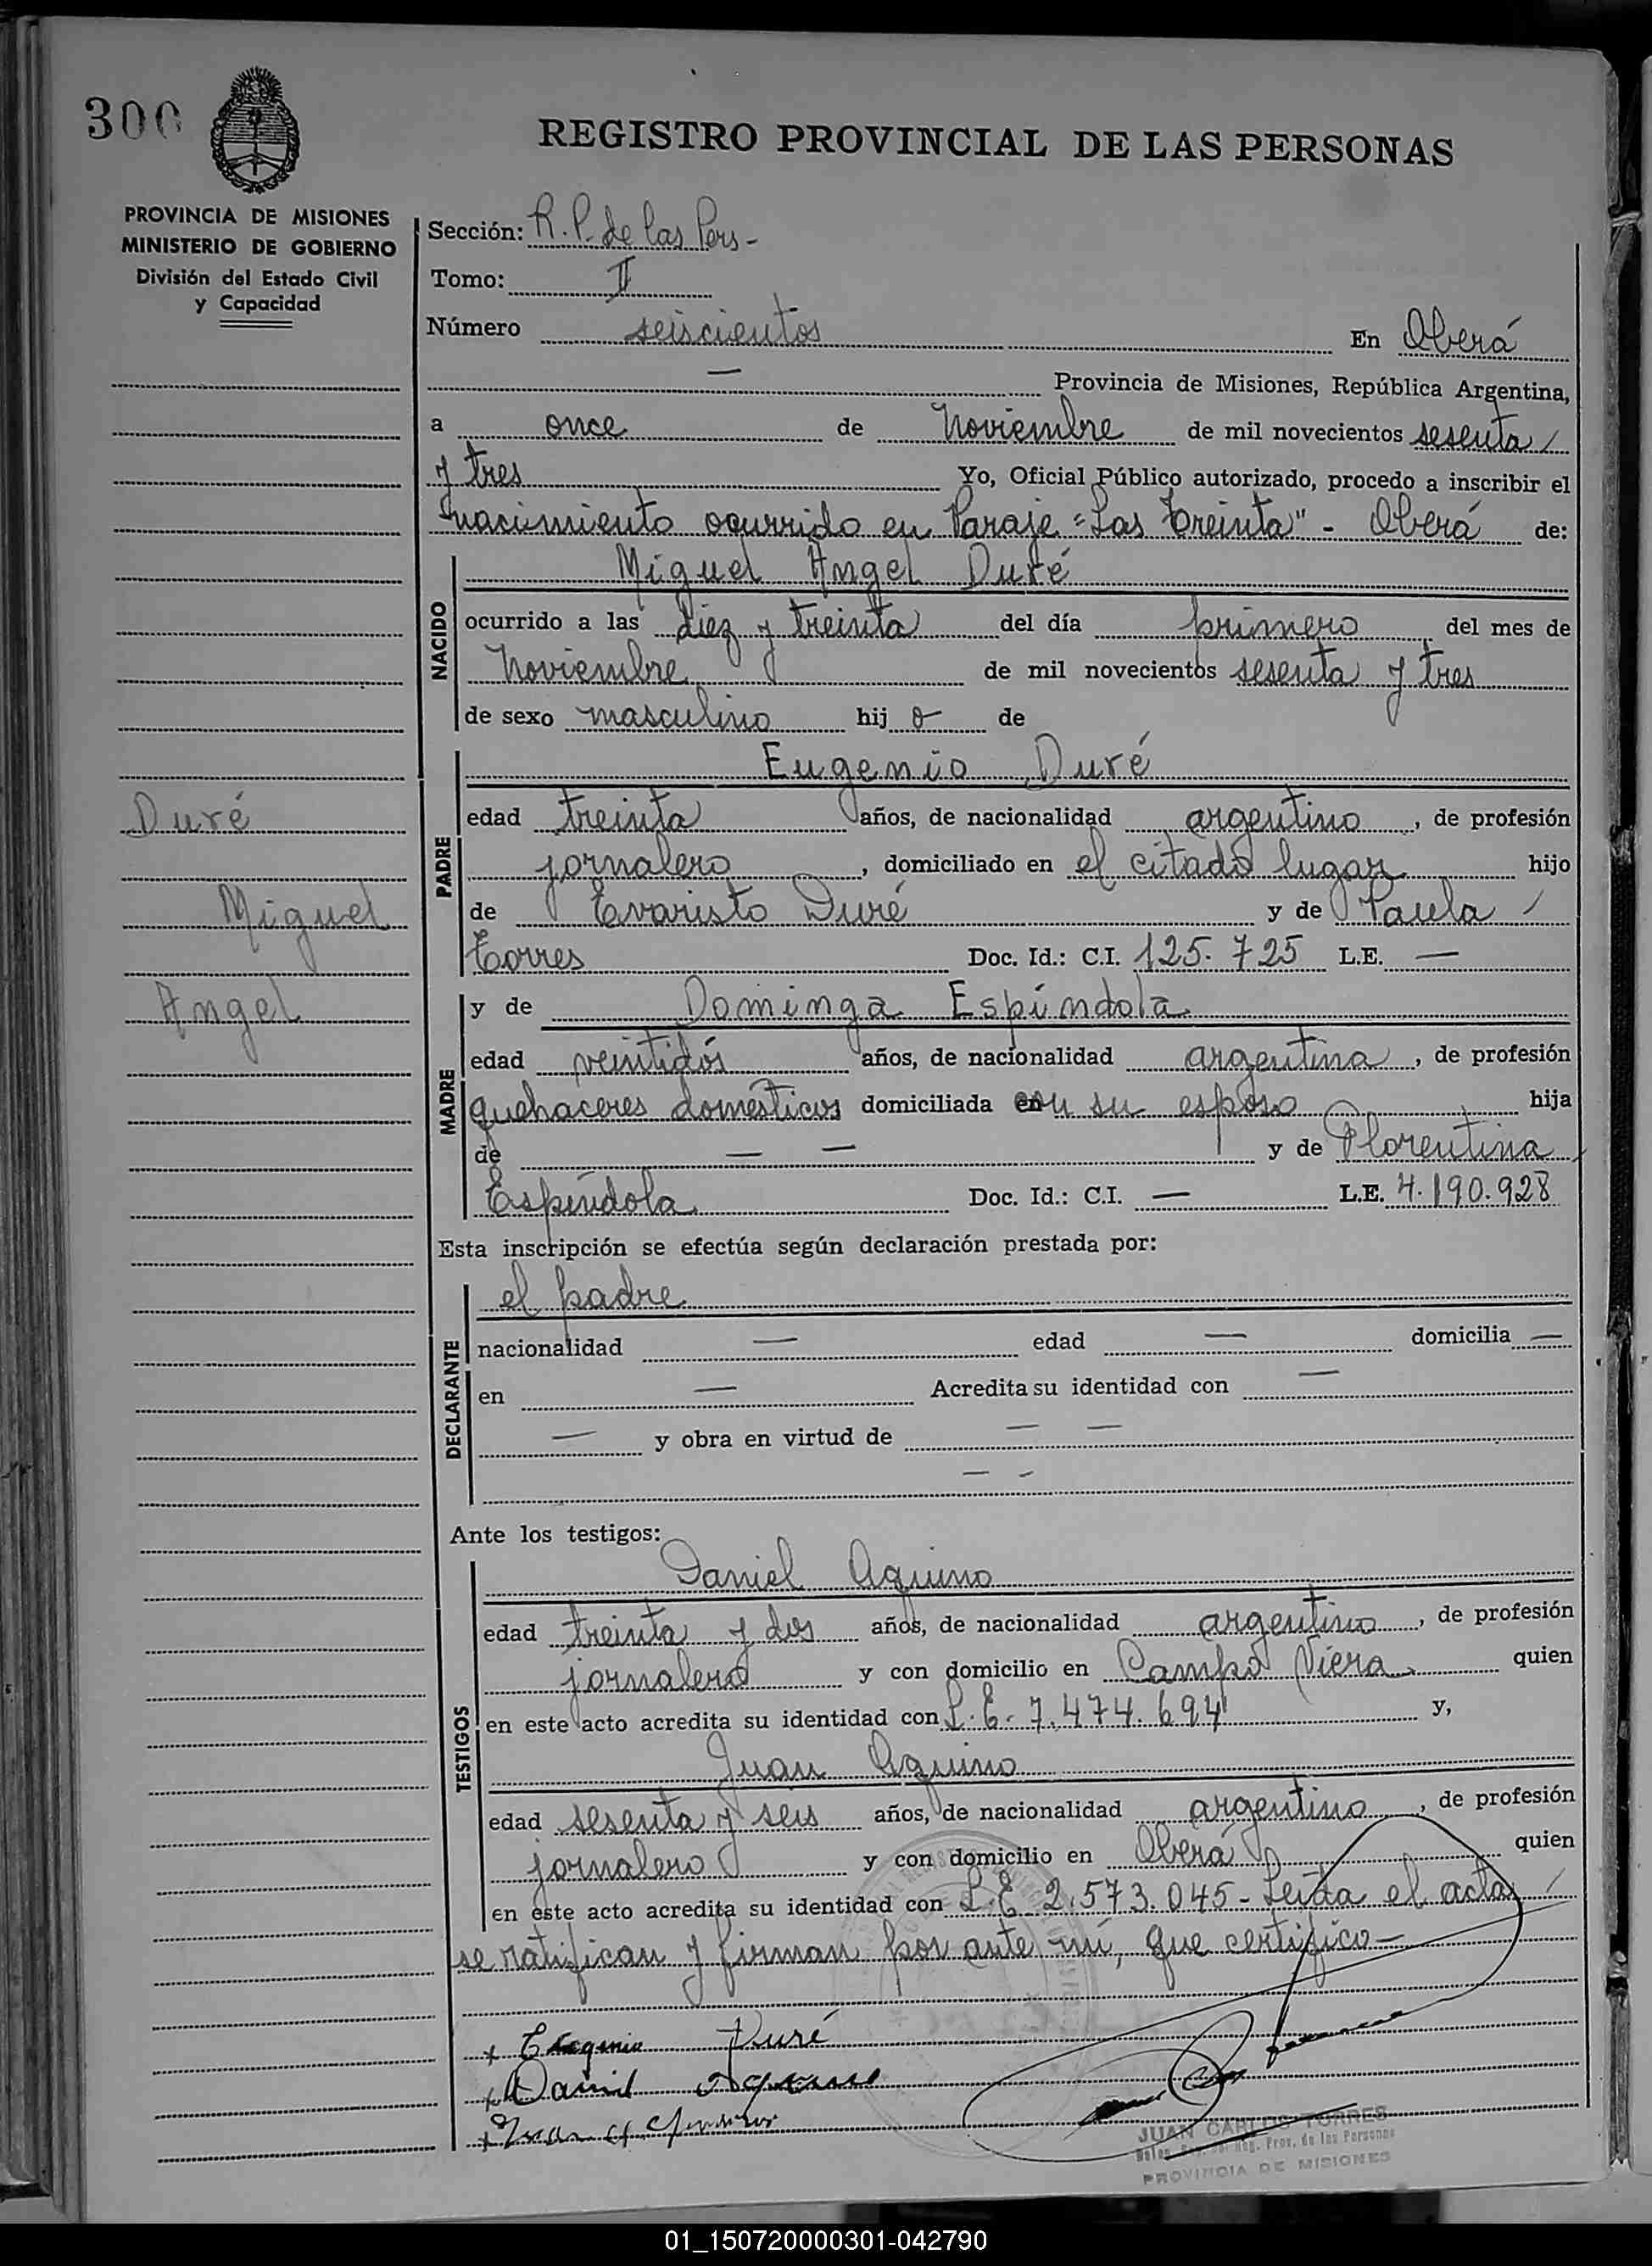 300
REGISTRO PROVINCIAL DE LAS PERSONAS
PROVINCIA DE MISIONES
MINISTERIO DE GOBIERNO
División del Estado Civil
y Capacidad
Sección: R. P. de las Pers-
Tomo: II
Número seiscientos En Oberá
— Provincia de Misiones, República Argentina,
a once de Noviembre de mil novecientos sesenta /
y tres Yo, Oficial Público autorizado, procedo a inscribir el
nacimiento ocurrido en Paraje "Las Treinta" - Oberá de:
NACIDO
Miguel Angel Duré
ocurrido a las diez y treinta del día primero del mes de
Noviembre de mil novecientos sesenta y tres
de sexo masculino hij o de
PADRE
Eugenio Duré
edad treinta años, de nacionalidad argentino, de profesión
jornalero, domiciliado en el citado lugar hijo
de Evaristo Duré y de Paula /
Torres Doc. Id.: C.I. 125.725 L.E. —
Duré
Miguel
Angel
MADRE
y de Dominga Espíndola
edad veintidós años, de nacionalidad argentina, de profesión
quehaceres domésticos domiciliada con su esposo hija
de — — y de Florentina
Espíndola Doc. Id.: C.I. — L.E. 4.190.928
Esta inscripción se efectúa según declaración prestada por:
DECLARANTE
el padre
nacionalidad — edad — domicilia —
en — Acredita su identidad con —
— y obra en virtud de — —
— -
Ante los testigos:
TESTIGOS
Daniel Aquino
edad treinta y dos años, de nacionalidad argentino, de profesión
jornalero y con domicilio en Campo Viera quien
en este acto acredita su identidad con L.E. 7.474.694 y,
Juan Aquino
edad sesenta y seis años, de nacionalidad argentino, de profesión
jornalero y con domicilio en Oberá quien
en este acto acredita su identidad con L.E. 2.573.045 - Leída el acta /
se ratifican y firman por ante mí, que certifico -
x Eugenio Duré
x Daniel Aquino
x Juan
JUAN CARLOS TORRES
Reg. Prov. de las Personas
PROVINCIA DE MISIONES
01_150720000301-042790